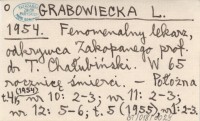 O GRABOWIECKA L.
1954. Fenomenalny lekarz,
odkrywca Zakopanego prof.
dr T. Chałubiński. W 65
rocznicę śmierci. - Położna
t.4, (1954) nr 10: 2-3; nr 11: 2-3;
nr 12: 5-6; t. 5 (1955) nr 1: 2-3.